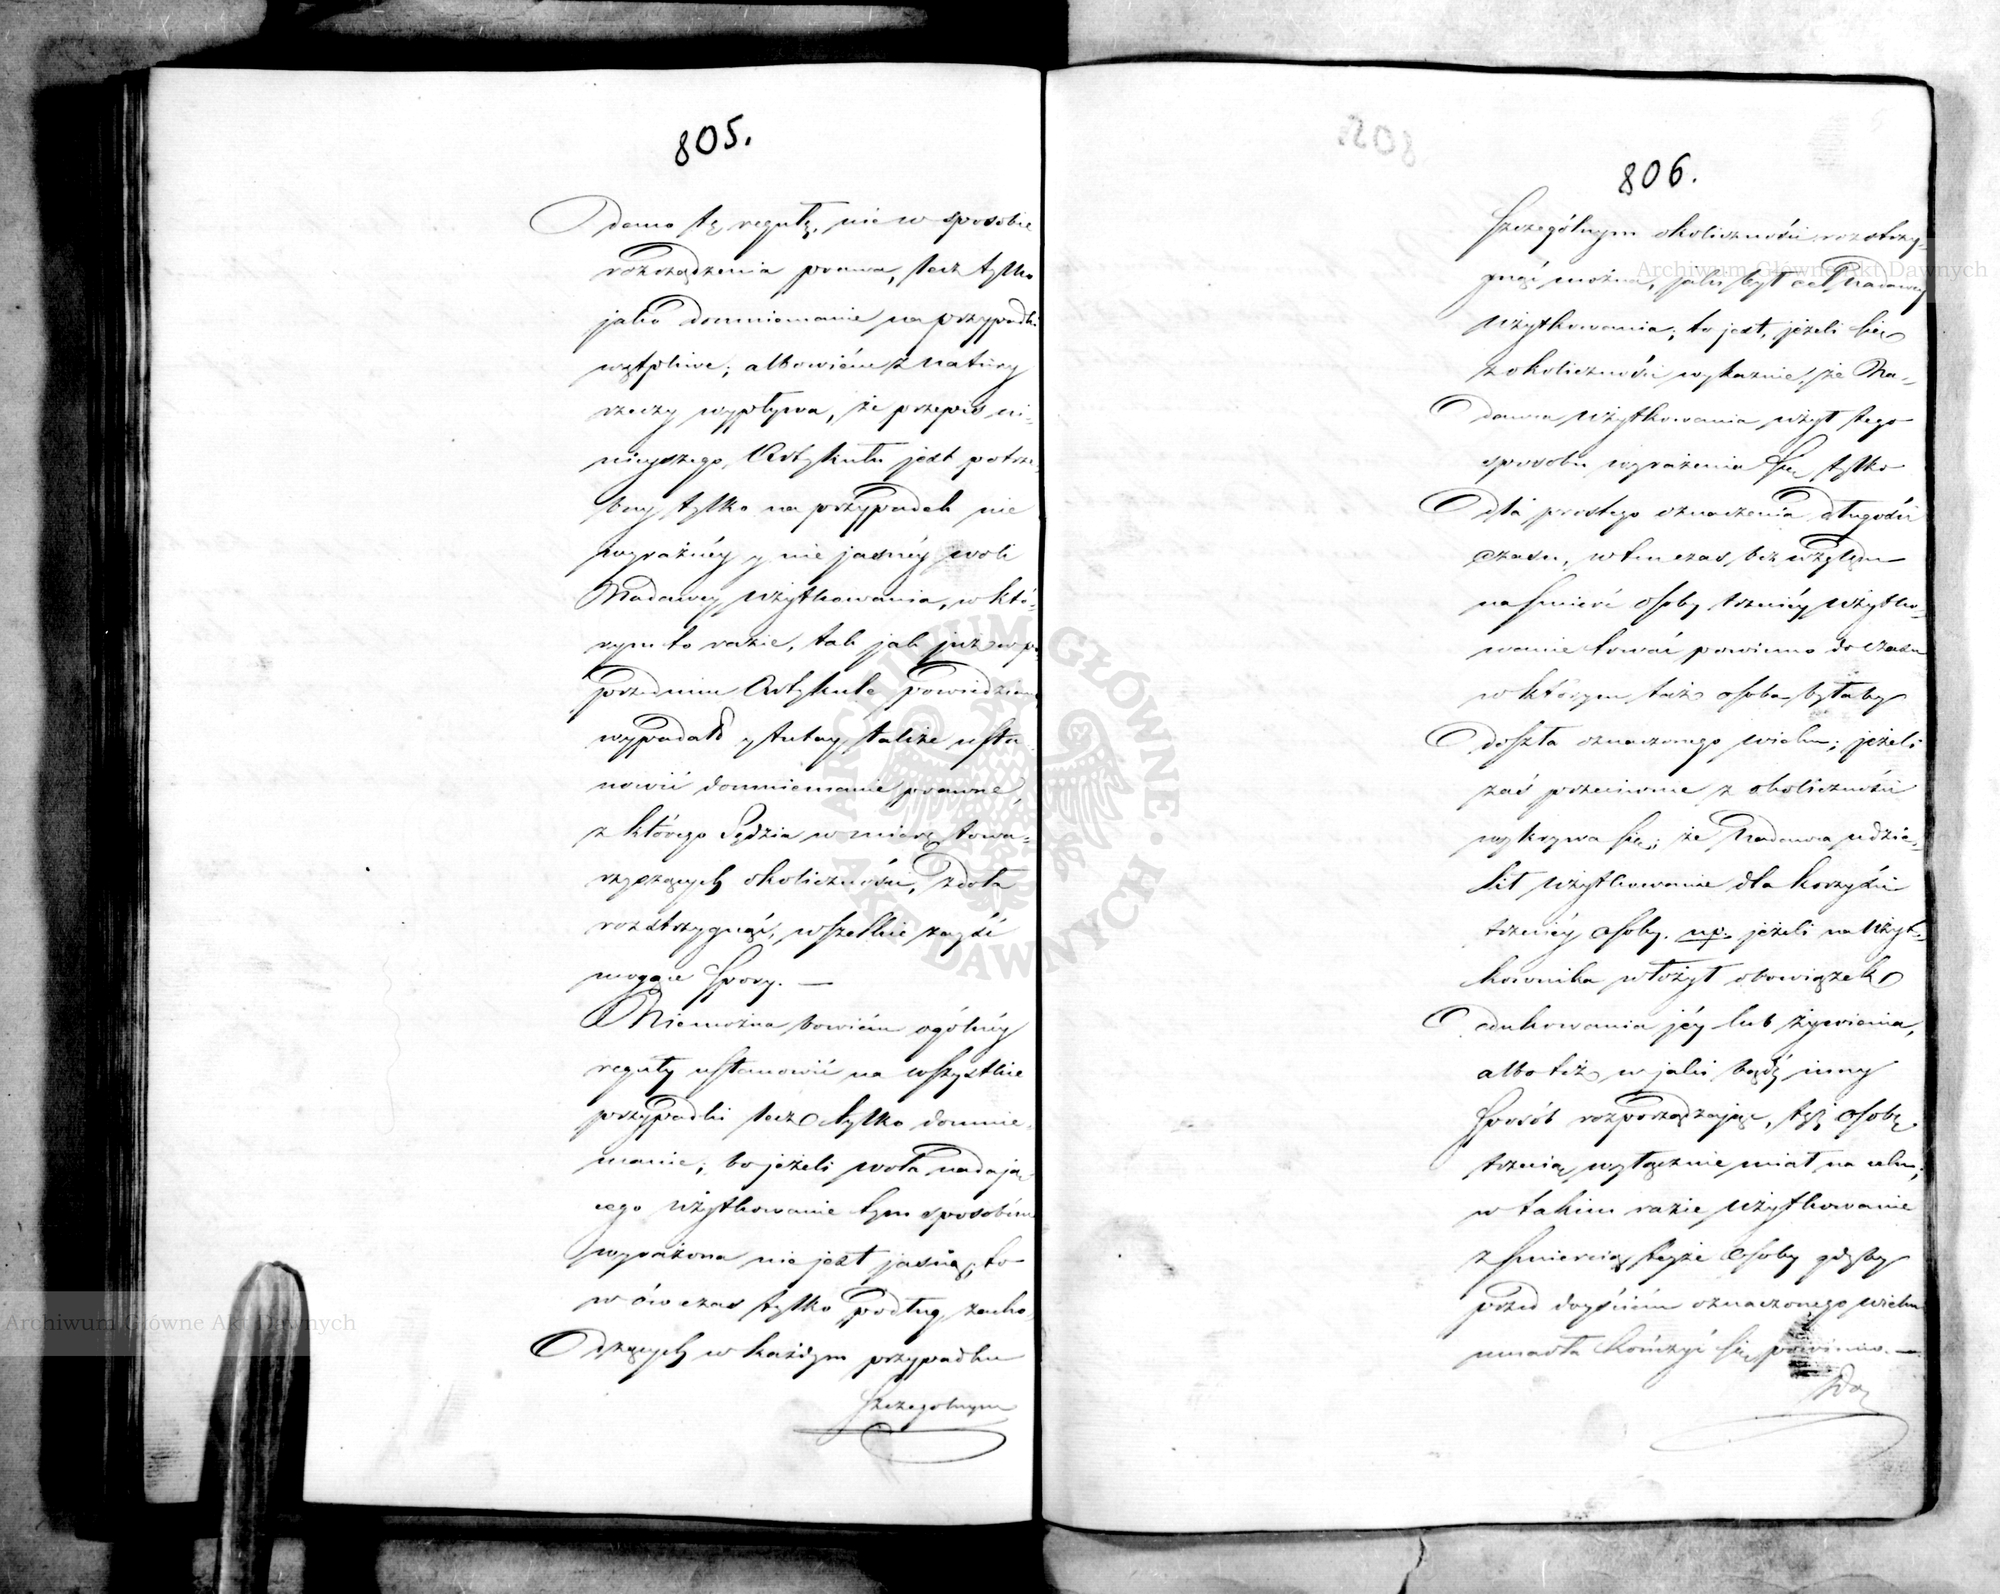 805.
dano tę regułę, nie w sposobie
rozrządzenia prawa, lecz tylko
jako domniemanie na przypadki
wątpliwe; albowiém z natury
rzeczy wypływa, że przepis ni-
nieyszego Artykułu jest potrze-
bny tylko na przypadek nie
wyraźnéy y nie jasnéy woli
Nadawcy użytkowania, w któ-
rym to razie, tak jak już w po
przednim Artykule powiedziano
wypadało y tutay także usta
nowić domniemanie prawne,
z którego Sędzia w miarę towa-
rzyszących okoliczności, zdoła
rozstrzygnąć, wszelkie zayść
mogące spory. —
Niemożna bowiém ogólnéy
reguły ustanowić na wszystkie
przypadki lecz tylko domnie-
manie; bo jeżeli wola nadają-
cego użytkowanie tym sposobem
wyrażona nie jest jasną, to
w ów czas tylko podług zacho-
dzących w każdym przypadku
szczegolnym
806.
szczególnym okoliczności rozstrzy-
gnąć można, jaki był cel Nadawcy
użytkowania; to jest, jeżeli się
z okoliczności wykaznie, że Na-
dawca użytkowania użył tego
sposobu wyrażenia się tylko
dla prostego oznaczenia długości
czasu, w tenczas bez względu
na śmierć osoby trzeciéy użytko-
wanie trwać powinno do czasu
w którym taż osoba byłaby
doszła oznaczonego wieku; jeżeli
zaś przeciwnie z okoliczności
wykrywa się; że Nadawca udzie-
lił użytkowanie dla korzyści
trzeciéy osoby. np. jeżeli na użyt-
kownika włożył obowiązek
edukowania jéy lub żywienia,
albo też w jaki bądź inny
sposób rozporządzając, tęż osobę
trzecią wyłącznie miał na celu;
w takim razie użytkowanie
z śmiercią teyże osoby gdyby
przed doyściem oznaczonego wieku
umarła kończyć się powinno. —
Archiwum Główne Akt Dawnych
Archiwum Główne Akt Dawnych
ARCHIWUM GŁÓWNE · AKT DAWNYCH ·